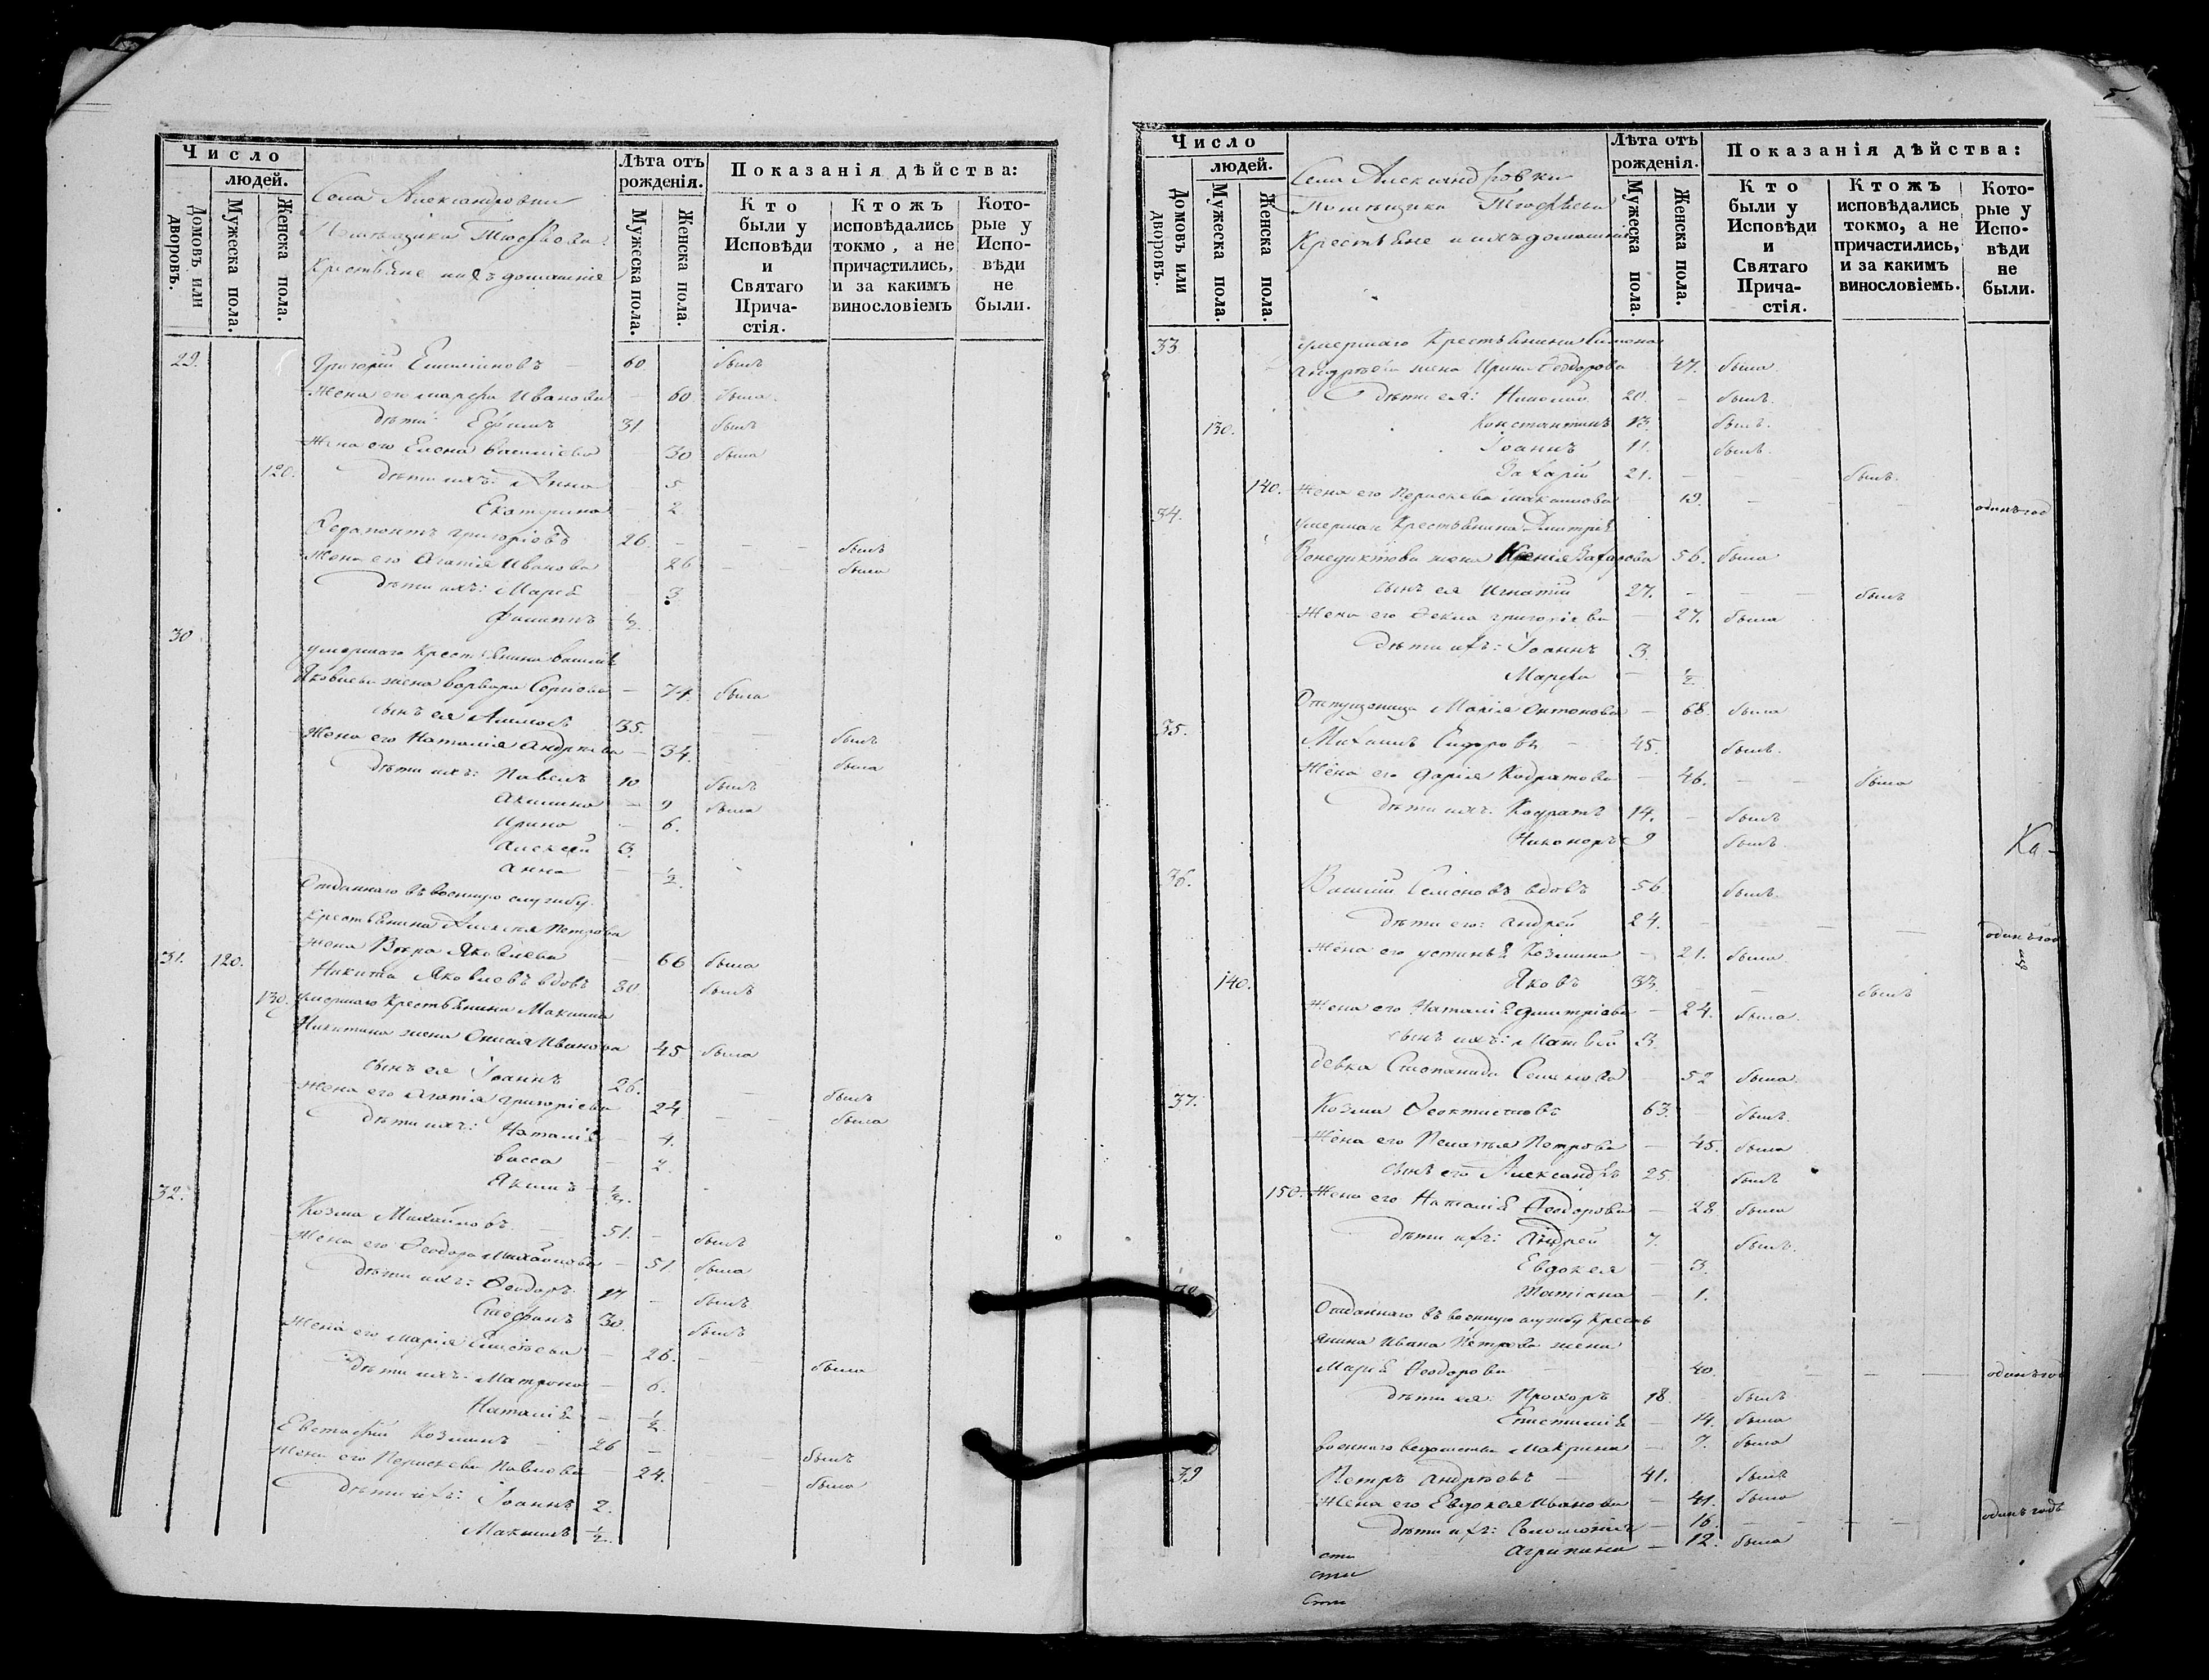 Число
людей.
Домовъ или дворовъ.
Мужеска пола.
Женска пола.
Села Александровки
Помѣщика
Крестьяне и ихъ домашніе
Лѣта отъ рожденія.
Мужеска пола.
Женска пола.
Показанія дѣйства:
Кто были у Исповѣди и Святаго Прича-стія.
Ктожъ исповѣдались токмо, а не причастились, и за какимъ винословіемъ
Кото-рые у Испо-вѣди не были.
29. Григорій 60 былъ
Жена его Марфа Иванова – 60 была
дѣти: Ефимъ 31 былъ
Жена его Елена Василіева 30 была
120. дѣти ихъ: Анна – 5
Екатерина – 2.
Григоріевъ 26. – – былъ
Жена его Агапія Иванова 26 – – была
дѣти ихъ: Марія 3
Филиппъ ½
30. умершаго крестьянина Василія
Яковлева жена Варвара Сергіева – 74. была
сынъ ея 35. – былъ
Жена его Наталія Андреева – 34. была
дѣти ихъ: Павелъ 10 былъ
Акилина – 9 была
Ирина – 6.
Алексѣй 3.
Анна – ½.
Отданнаго въ военную службу
крестьянина Алексѣя Петрова
жена Вѣра Яковлева 66 была
31. 120. Никита Яковлевъ вдовъ 80 былъ
130. умершаго крестьянина Максима
Никитина жена Иванова 45 была
сынъ ея Іоаннъ 26. – былъ
Жена его Агапія Григоріева 24. – – была
дѣти ихъ: Наталія – 4.
Васса – 2.
Якимъ ½.
32. Козма Михайловъ 51. – былъ
Жена его Феодора Михайлова – 51 была
дѣти ихъ: Феодоръ 17 – былъ
Стефанъ 30. былъ
Жена его Марія – 26. – была
дѣти ихъ: Матрона – 6.
Наталія – ½
Евстафій Козминъ – 26 – – былъ
Жена его Параскева Павлова 24. – была
дѣти ихъ: Іоаннъ 2.
Максимъ ½.
Число
людей.
Домовъ или дворовъ.
Мужеска пола.
Женска пола.
Села Александровки
Помѣщика
Крестьяне и ихъ домашніе
Лѣта отъ рожденія.
Мужеска пола.
Женска пола.
Показанія дѣйства:
Кто были у Исповѣди и Святаго Прича-стія.
Ктожъ исповѣдались токмо, а не причастились, и за какимъ винословіемъ.
Кото-рые у Испо-вѣди не были.
33 умершаго крестьянина Симона
Андрѣева жена Ирина Феодорова 47. была
дѣти ея: Николай 20. – былъ.
130. Константинъ 13. былъ.
Іоаннъ 11. былъ.
Захарій 21. – – былъ.
140. Жена его Параскева Максимова 19. – – одинъ год
34. умершаго крестьянина Дмитрія
Венедиктова жена Ксенія Захарова 56. была
сынъ ея Игнатій 27. – – былъ
Жена его Фекла Григоріева – 27. была
дѣти ихъ: Іоаннъ 3.
Марфа – ½
Марія Антонова – 68. была
35. Михаилъ Сидоровъ – 45. былъ.
Жена его Дарія Кодратова – 46. – – была
дѣти ихъ: Кодратъ 14. – былъ
Никоноръ 9 былъ.
Ка-
36. Василій Семеновъ вдовъ 56 былъ.
дѣти его: Андрей 24. – – – одинъ год
Жена его Устинья Козмина – 21. была.
140. Яковъ 33. – – былъ
Жена его Наталія Дмитріева – 24. была.
сынъ ихъ: Матвѣй 3.
девка Степанида Семенова – 52 была.
37. Козма Феоктистовъ 63. – былъ.
Жена его Пелагея Петрова – 45. была
сынъ его Александръ 25. былъ
150. Жена его Наталія Феодорова – 28. была
дѣти ихъ: Андрей 7. былъ.
Евдокея – 3.
Татіана – 1.
Отданнаго въ военную службу кресть
янина Ивана Петрова жена
Марія Феодорова – 40. – – – одинъ год
дѣти ея: Прохоръ 18. – былъ
Епистимія – 14. была
военнаго ведомства Макрина – 7. была
39 Петръ Андрѣевъ – 41. былъ
Жена его Евдокея Иванова – 41. была
дѣти ихъ: Соломонія – 16. – – – одинъ годъ
Агрипина – 12. была
сти
сти
сти